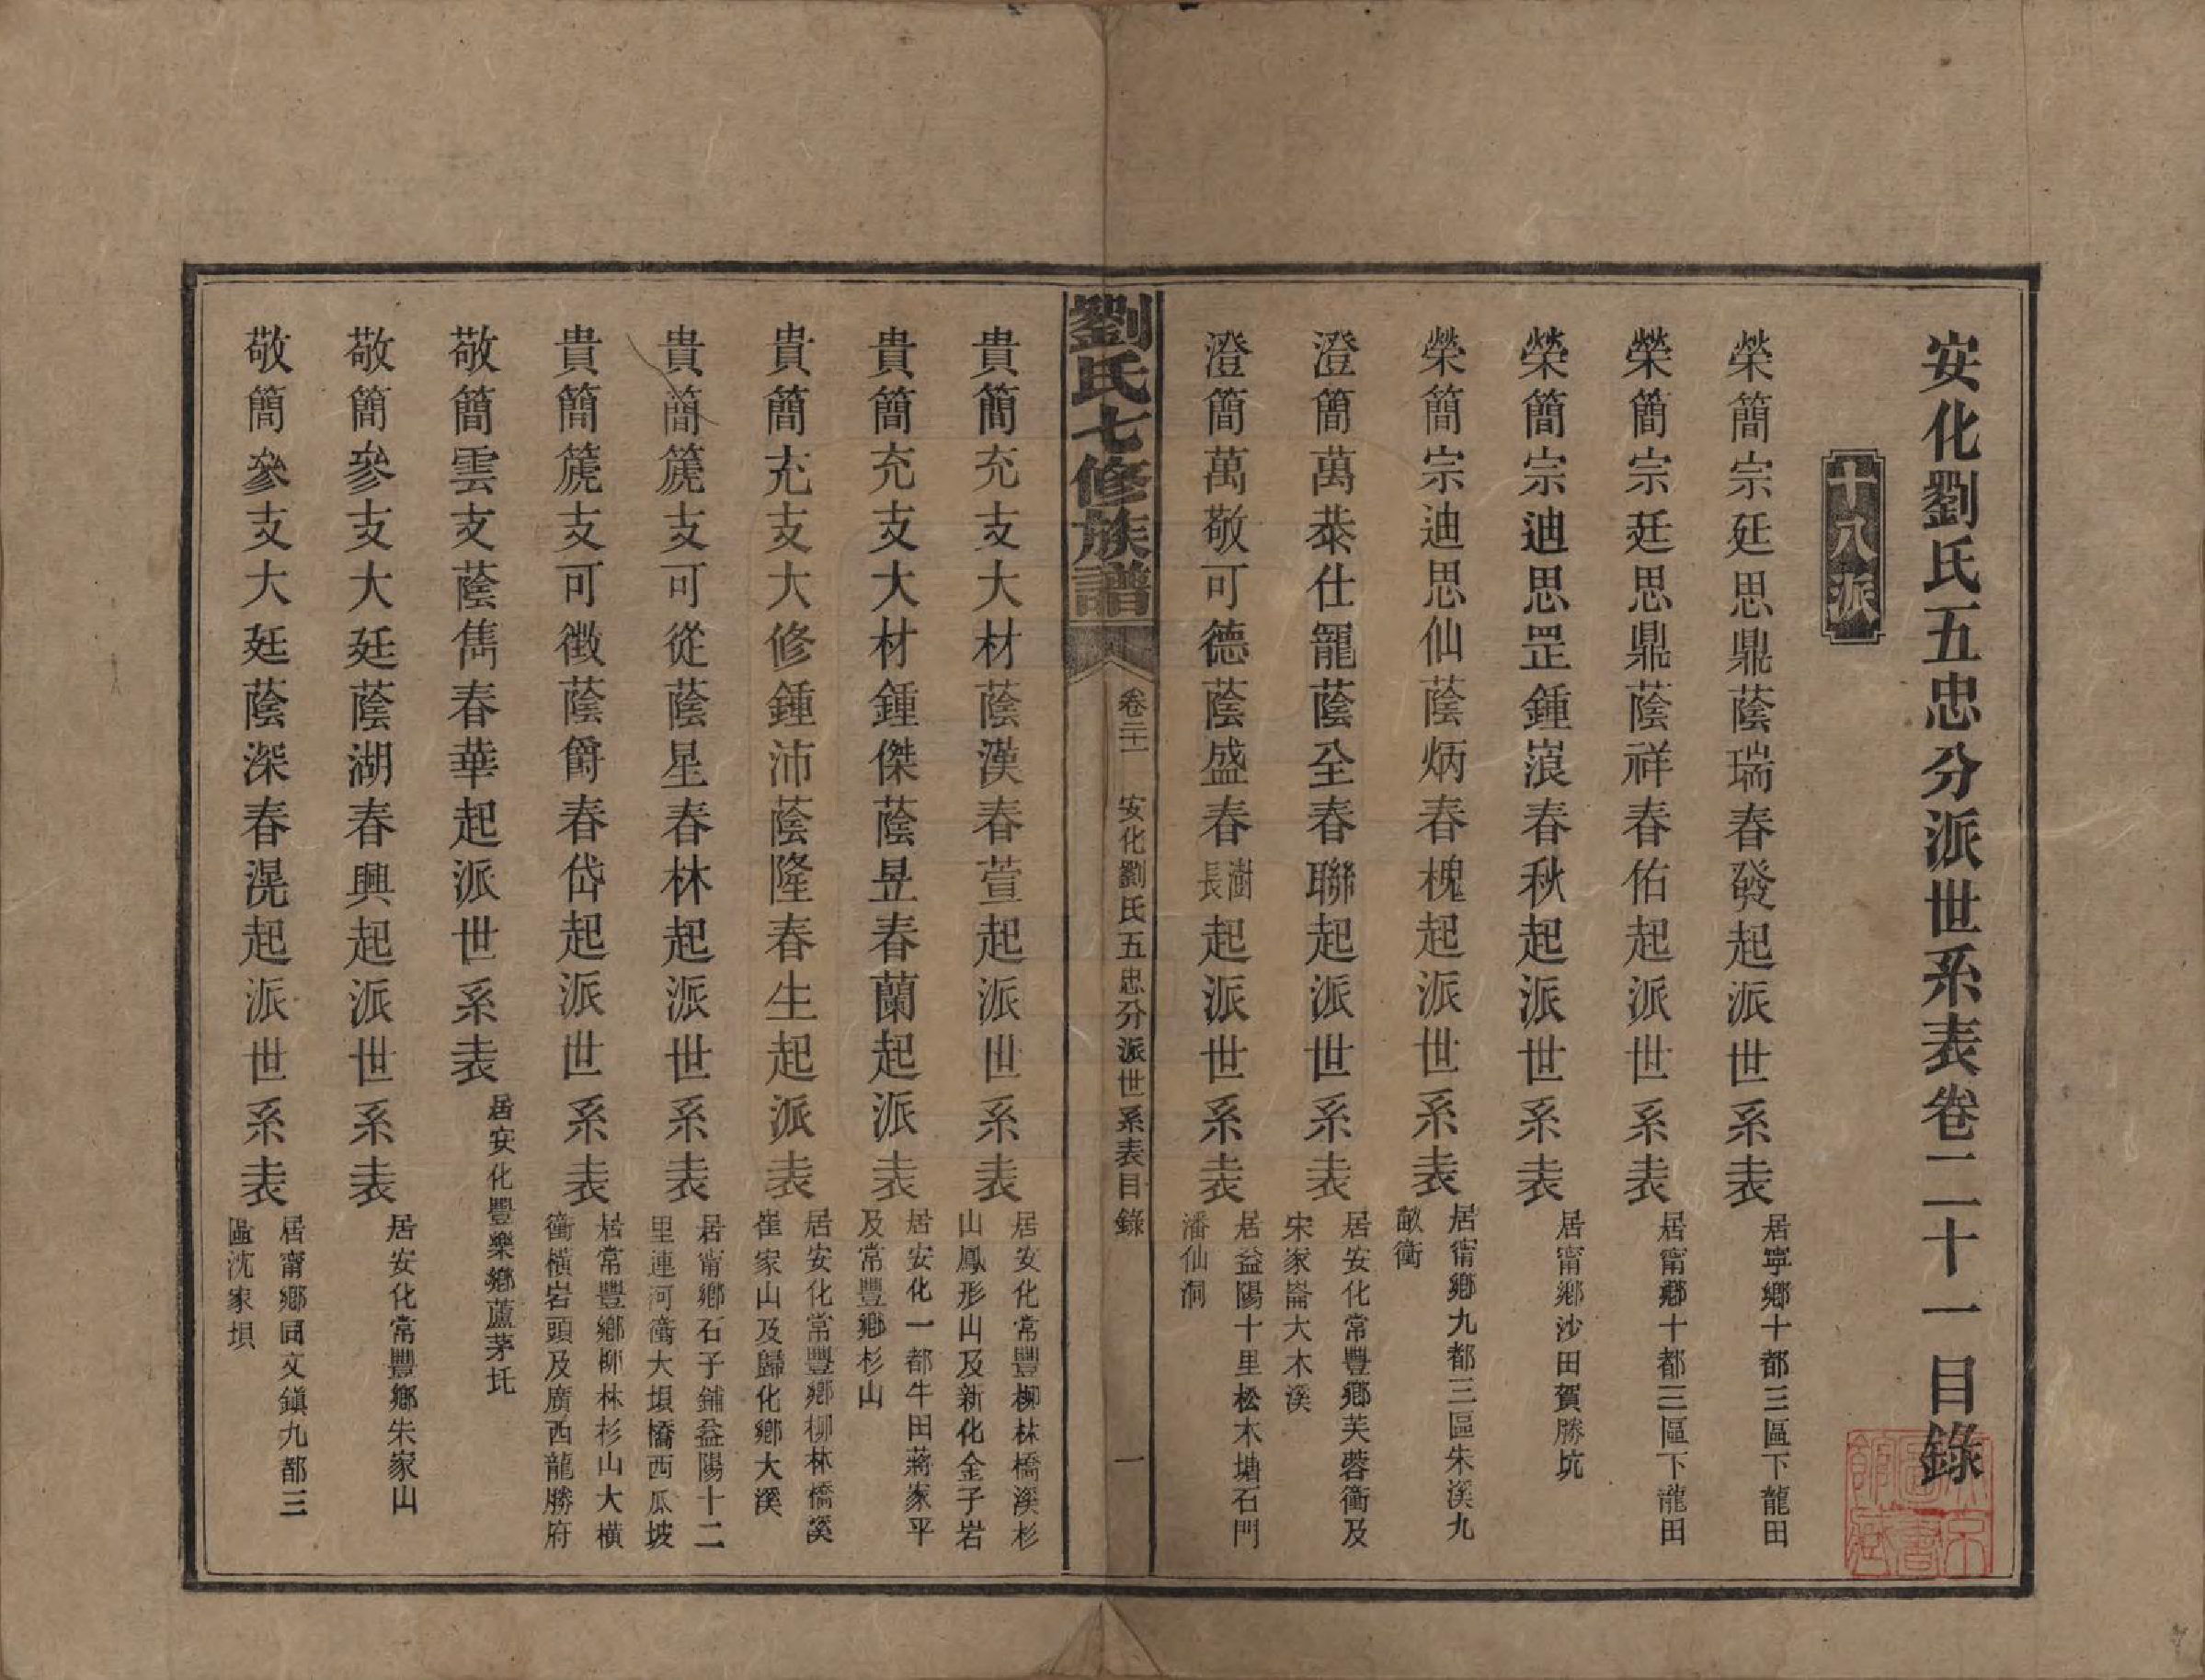 安化劉氏五忠分派世系表卷二十一目錄
十八派
榮簡宗廷思鼎蔭瑞春發起派世系表 居寧鄉十都三區下龍田
榮簡宗廷思鼎蔭祥春佑起派世系表 居甯鄉十都三區下龍田
榮簡宗迪思罡鍾崀春秋起派世系表 居甯鄉沙田賀勝坑
榮簡宗迪思仙蔭炳春槐起派世系表 居甯鄉九都三區朱溪九
畝衝
澄簡萬恭仕寵蔭全春聯起派世系表 居安化常豐鄉芙蓉衝及
宋家崙大木溪
澄簡萬敬可德蔭盛春澍長起派世系表 居益陽十里松木塘石門
潘仙洞
劉氏七修族譜 卷二十一 安化劉氏五忠分派世系表目錄 一
貴簡充支大材蔭漢春萱起派世系表 居安化常豐柳林橋溪杉
山鳳形山及新化金子岩
貴簡充支大材鍾傑蔭昱春蘭起派世系表 居安化一都牛田蔣家平
及常豐鄉杉山
貴簡充支大修鍾沛蔭隆春生起派世系表 居安化常豐鄉柳林橋溪
崔家山及歸化鄉大溪
貴簡篪支可從蔭星春林起派世系表 居甯鄉石子鋪益陽十二
里連河衝大垻橋西瓜坡
貴簡篪支可徵蔭爵春岱起派世系表 居常豐鄉柳林杉山大橫
衝橫岩頭及廣西龍勝府
敬簡雲支蔭雋春華起派世系表 居安化豐樂鄉蘆茅圫
敬簡參支大廷蔭湖春興起派世系表 居安化常豐鄉朱家山
敬簡參支大廷蔭深春滉起派世系表 居甯鄉同文鎮九都三
區沈家垻